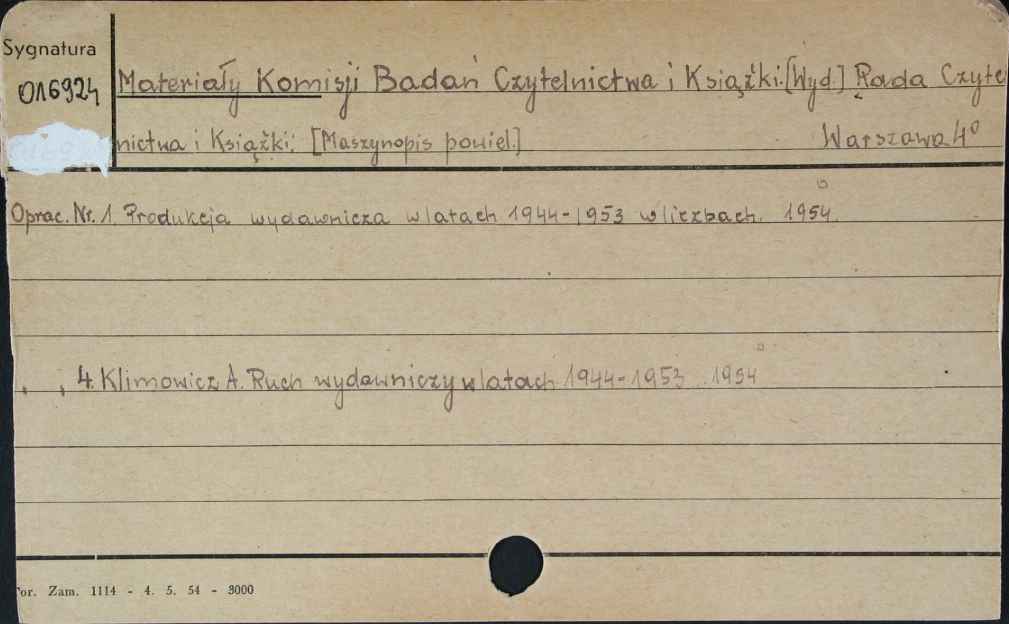 Sygnatura
016924
Materiały Komisji Badań Czytelnictwa i Książki. [Wyd.] Rada Czyte
nictwa i Książki. [Maszynopis powiel.] Warszawa 4°
Oprac. Nr. 1. Produkcja wydawnicza w latach 1944-1953 w liczbach. 1954.
" " 4. Klimowicz A. Ruch wydawniczy w latach 1944-1953. 1954
Tor. Zam. 1114 - 4. 5. 54 - 3000